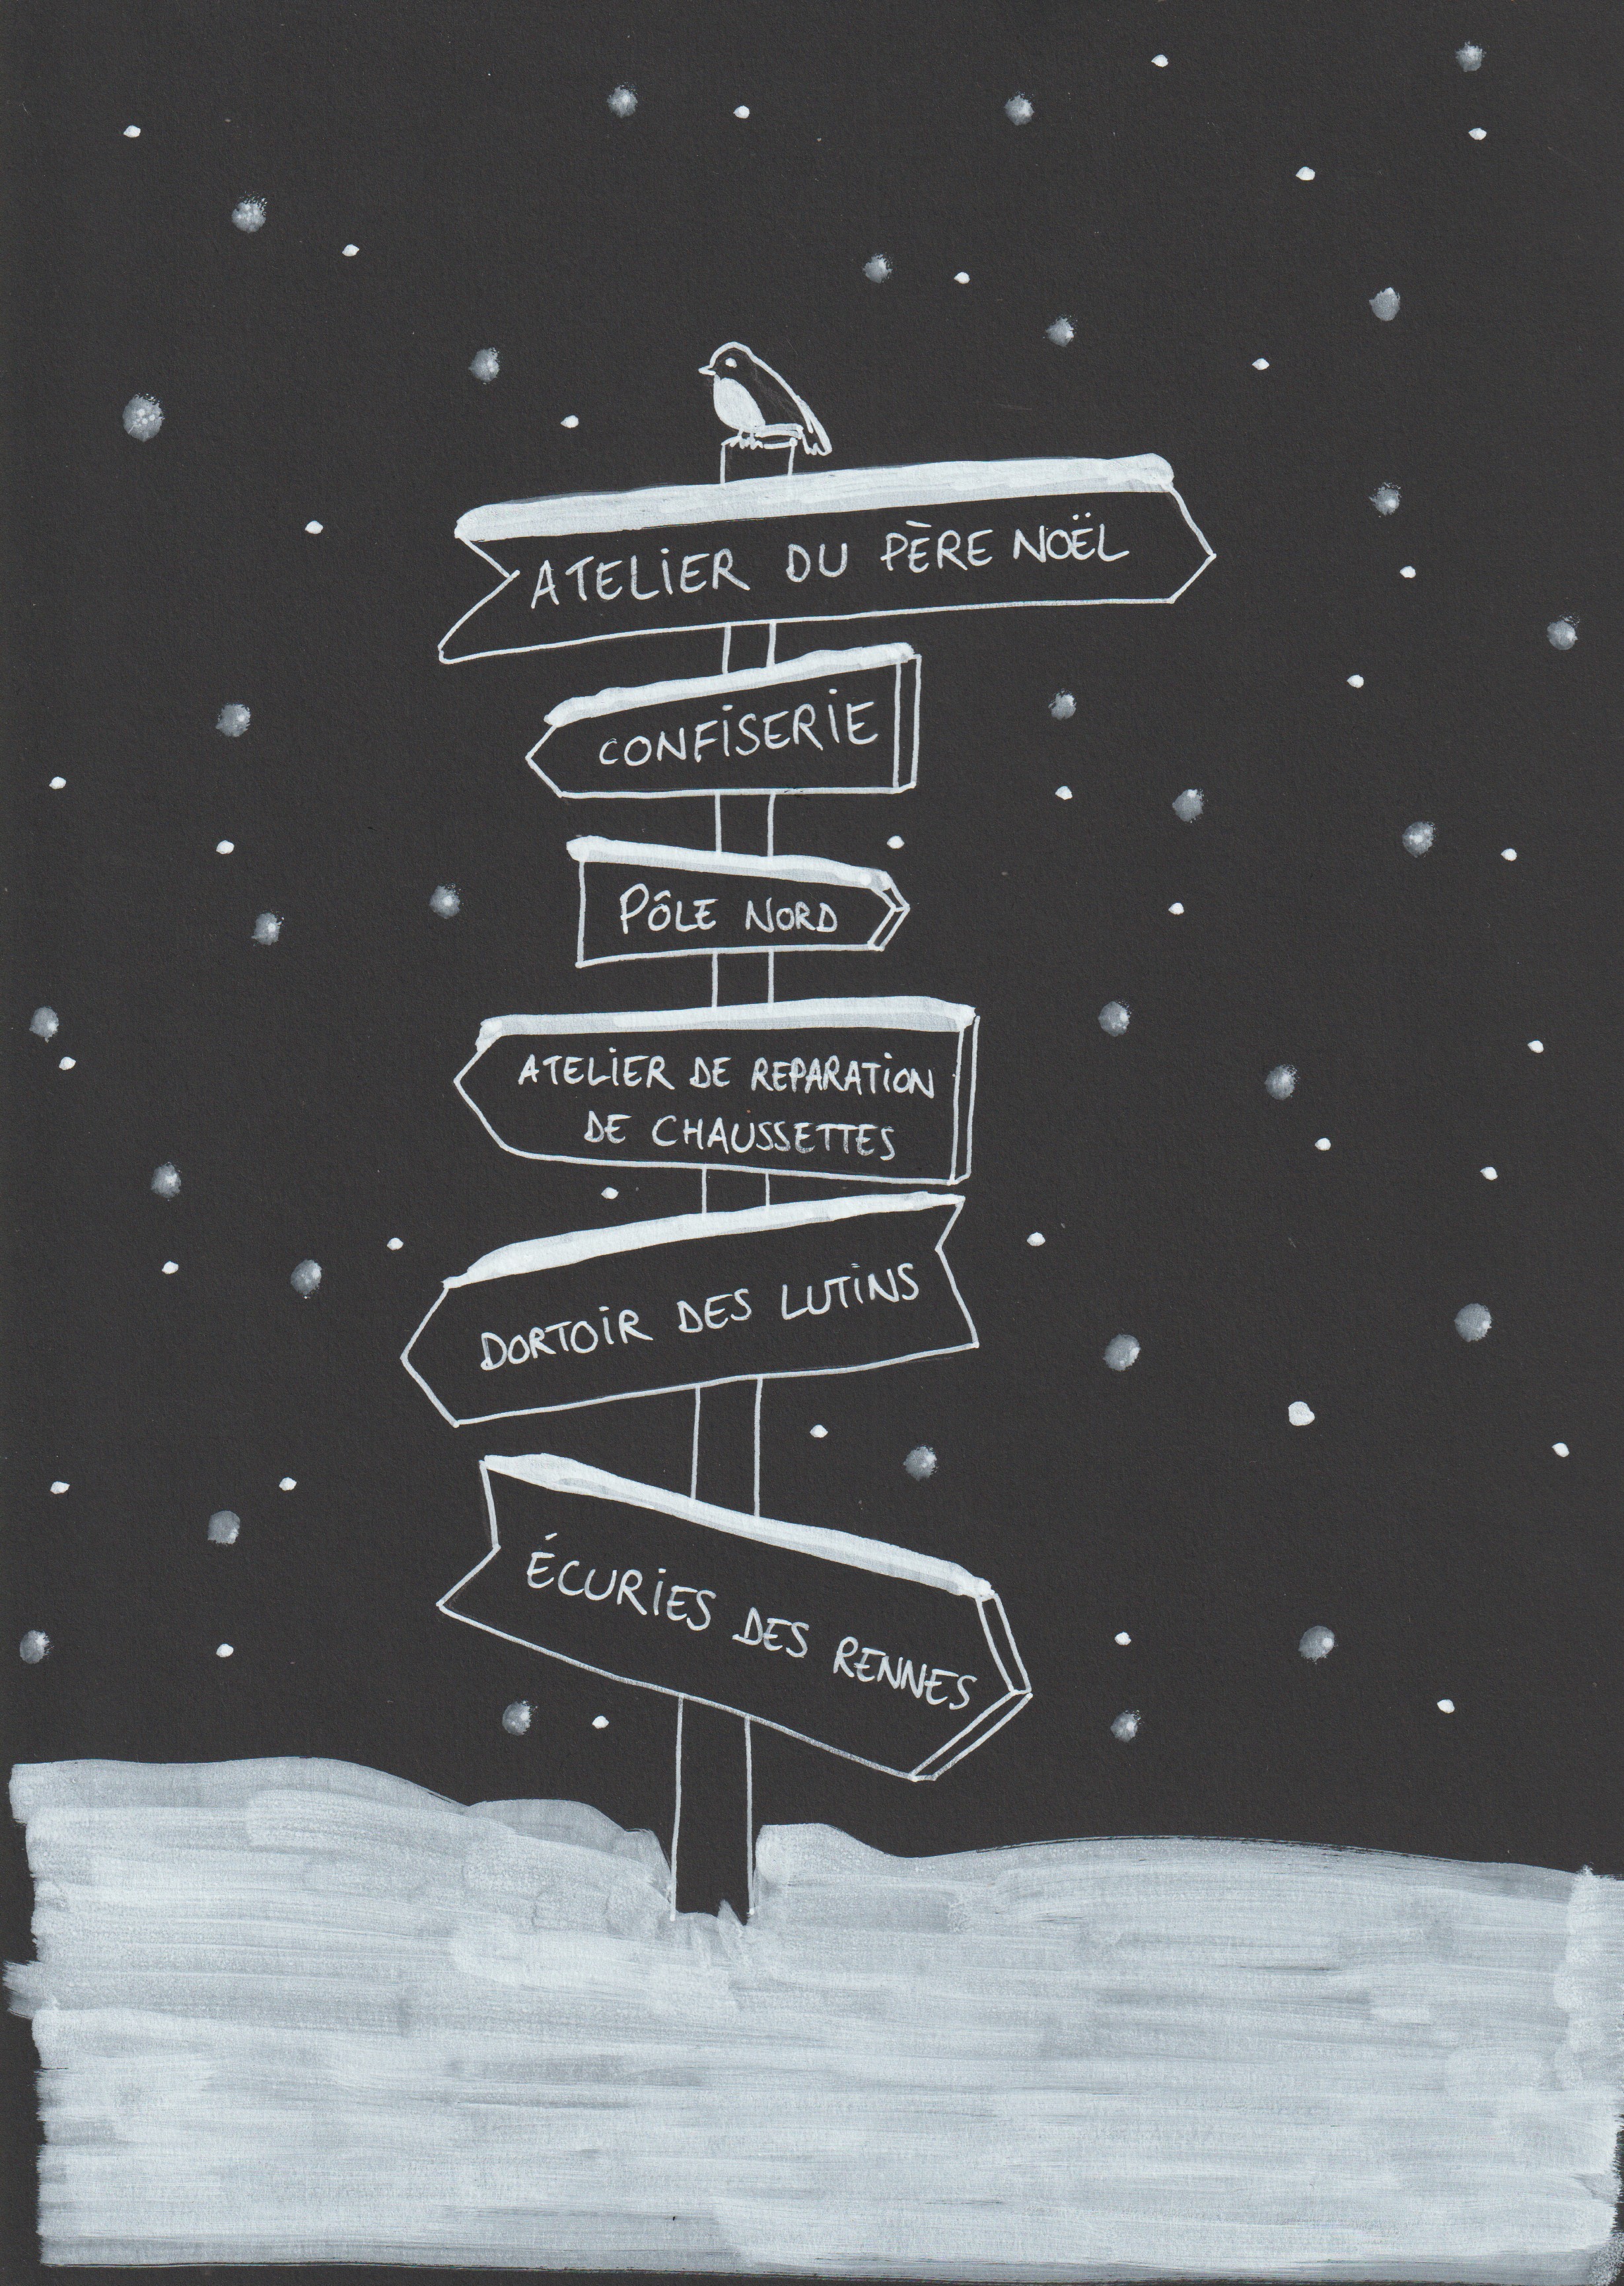 ATELIER DU PÈRE NOËL
CONFISERIE
PÔLE NORD
ATELIER DE REPARATION
DE CHAUSSETTES
DORTOIR DES LUTINS
ÉCURIES DES RENNES